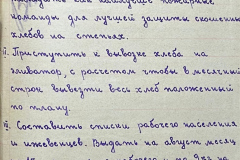 команды для лучшей защиты скошенных
хлебов на степях.
Приступить к вывозке хлеба на
элеватор, с расчетом чтобы в месячный
строк вывезти весь хлеб положенный
по плану.
Составить списки рабочего населения
и иждевенцев. Выдать на август месяц